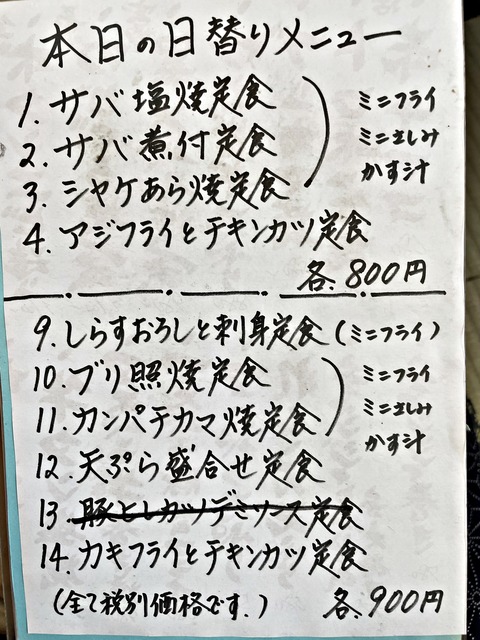 本日の日替りメニュー
1. サバ塩焼定食
2. サバ煮付定食
3. シャケあら焼定食
ミニフライ
ミニさしみ
かす汁
4. アジフライとチキンカツ定食
各.800円
9. しらすおろしと刺身定食(ミニフライ)
10. ブリ照焼定食
11. カンパチカマ焼定食
ミニフライ
ミニさしみ
かす汁
12. 天ぷら盛合せ定食
13 豚ヒレカツデミソース定食
14. カキフライとチキンカツ定食
(全て税別価格です.) 各.900円